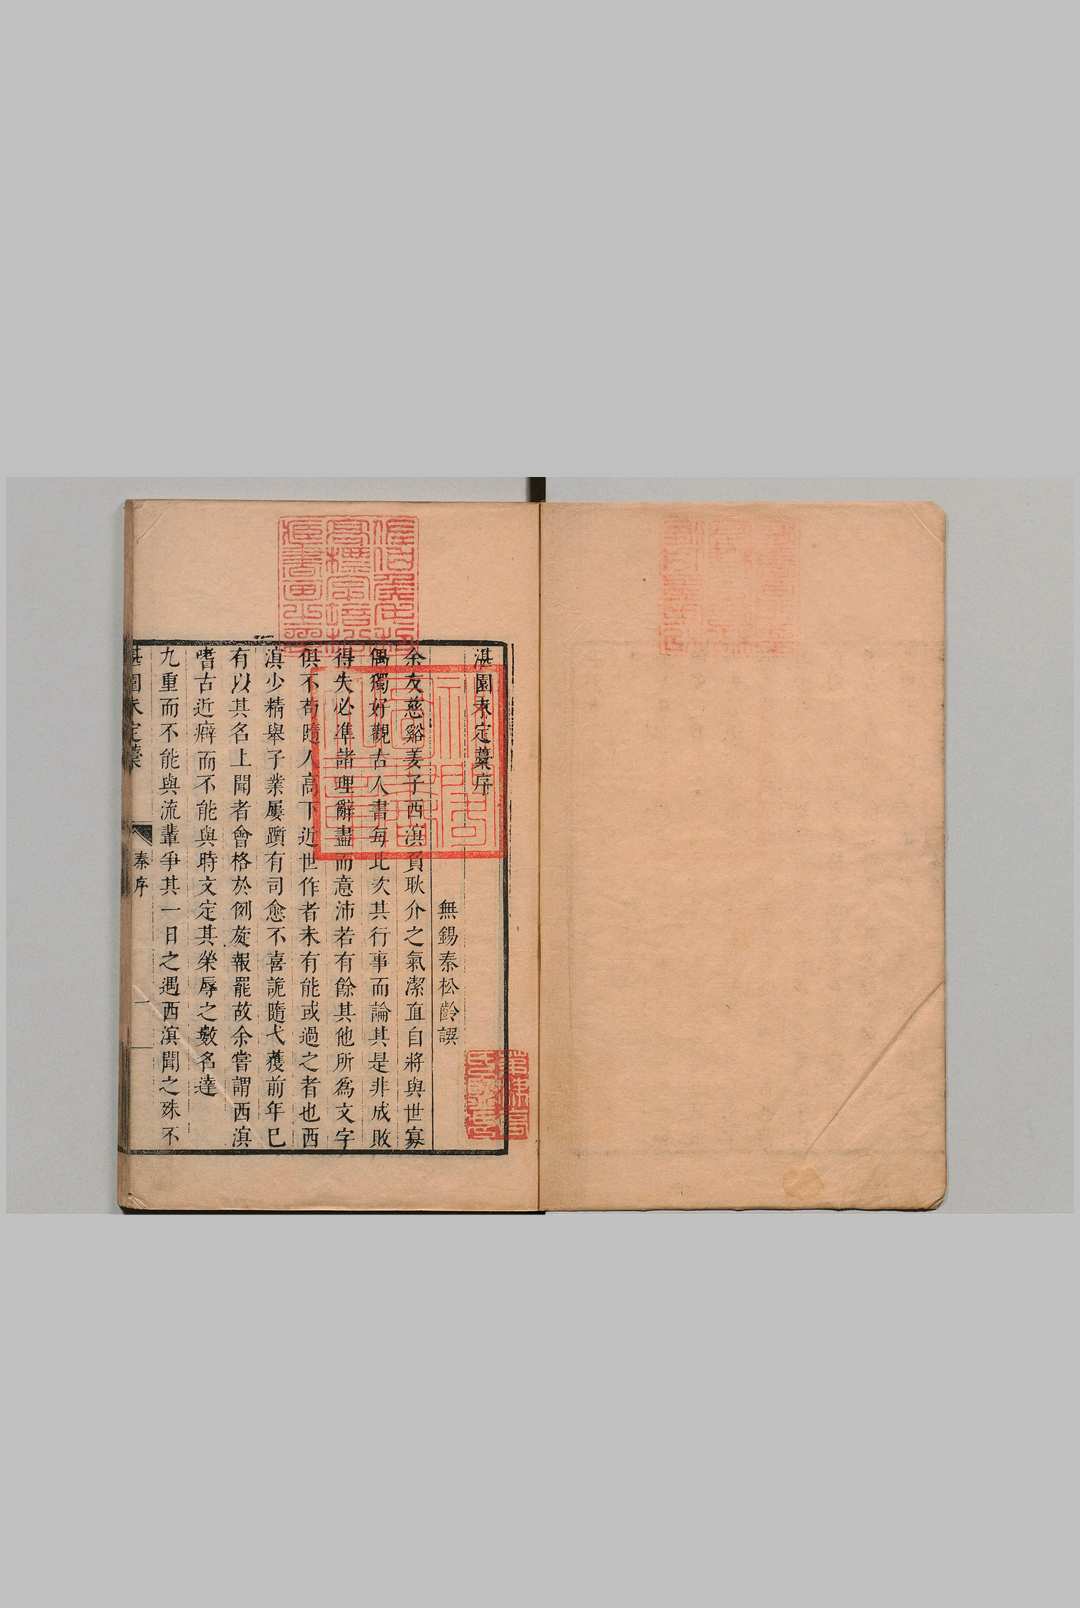 湛園未定藳序
無錫秦松齡譔
余友慈谿姜子西溟負耿介之氣潔直自將與世寡
偶獨好觀古人書每比次其行事而論其是非成敗
得失必準諸理辭盡而意沛若有餘其他所爲文字
俱不苟隨人高下近世作者未有能或過之者也西
溟少精舉子業屢躓有司愈不喜詭隨弋獲前年已
有以其名上聞者會格於例旋報罷故余嘗謂西溟
嗜古近癖而不能與時文定其榮辱之數名達
九重而不能與流輩爭其一日之遇西溟聞之殊不
湛園未定藳
秦序
一